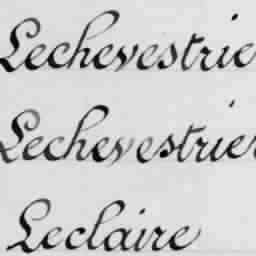 Lechevestrie
Lechevestrier
Leclaire